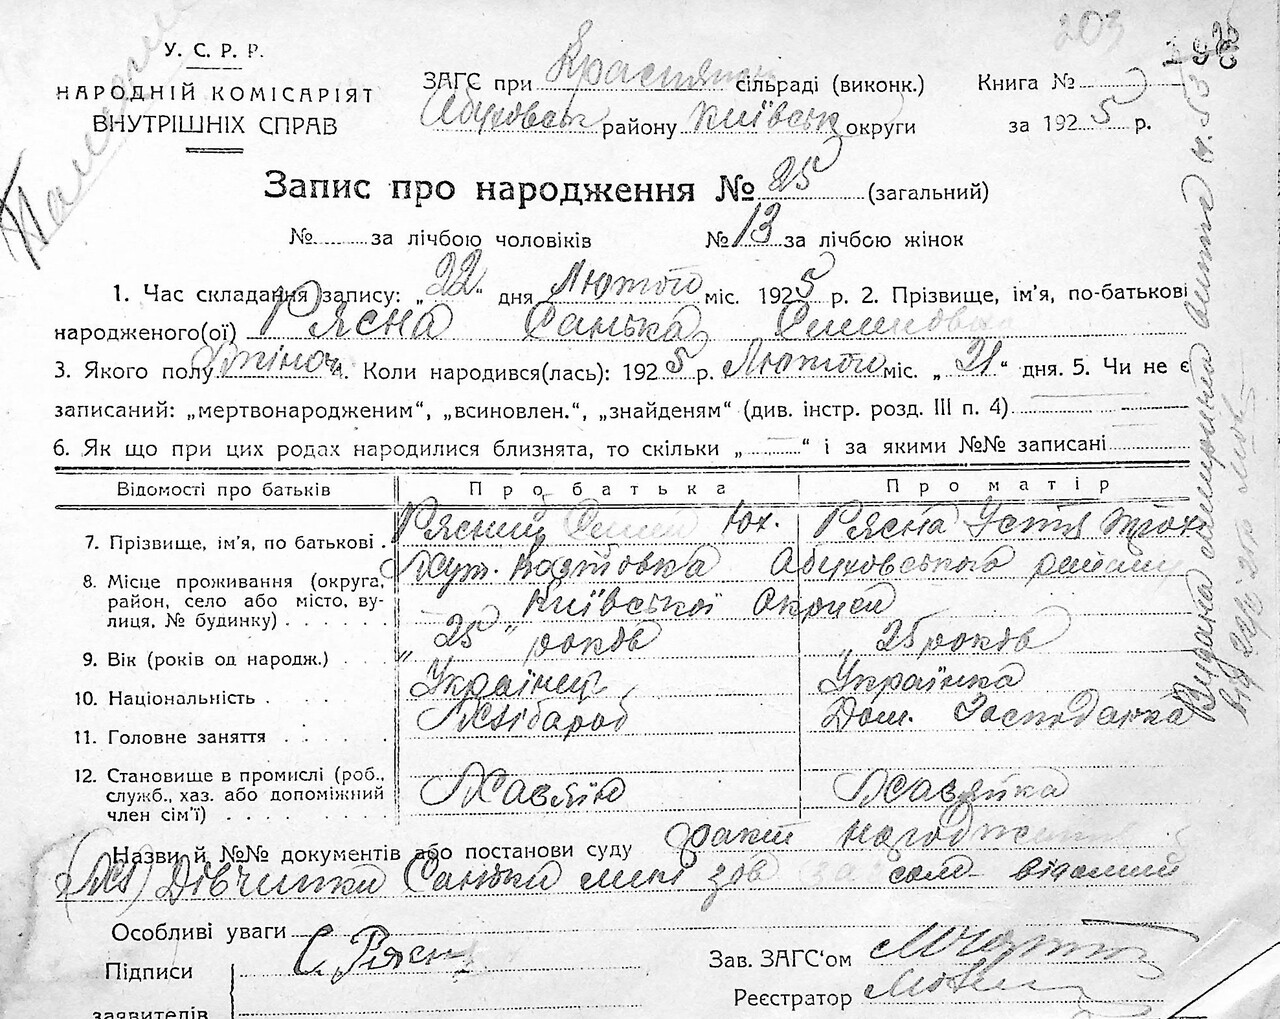 203
У. С. Р. Р.
НАРОДНІЙ КОМІСАРІЯТ
ВНУТРІШНІХ СПРАВ
ЗАГС при сільраді (виконк.)
Книга №
Обуховськ району Київськ округи
за 1925 р.
Запис про народження № 25 (загальний)
№ за лічбою чоловіків № 13 за лічбою жінок
1. Час складання запису: „22“ дня Лютого міс. 1925 р. 2. Прізвище, ім’я, по-батькові
народженого(ої) Рясна Санька Семеновна
3. Якого полу жіноч. Коли народився(лась): 1925 р. Лютого міс. „21“ дня. 5. Чи не є
записаний: „мертвонародженим“, „всиновлен.“, „знайденям“ (див. інстр. розд. III п. 4)
6. Як що при цих родах народилися близнята, то скільки „ “ і за якими №№ записані
Відомості про батьків Про батька Про матір
7. Прізвище, ім’я, по батькові . Рясний Семен Юх. Рясна Устя Трох
8. Місце проживання (округа, район, село або місто, вулиця, № будинку) . . . . . . Хут. Обуховського района
Київської Округи
9. Вік (років од народж.) . . . „25“ років „25 років
10. Національність . . . . . . Українец Українка
11. Головне заняття . . . . . . Хлібароб Дом. Господарка
12. Становище в промислі (роб.,
служб., хаз. або допоміжний
член сім’ї) . . . . . . . . . Хазяїн Хазяйка
Назви й №№ документів або постанови суду факт народження
Дівчинки Саньки мені відомий
Особливі уваги
Підписи
заявителів
С. Рясн
Зав. ЗАГС‘ом
Реєстратор